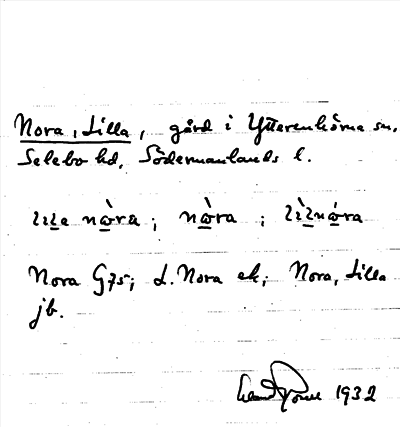 Nora, Lilla, gård i Ytterenhörna sn,
Selebo hd, Södermanlands l.
nò̲ra;
Nora G75; L. Nora ek; Nora, Lilla
jb.
1932